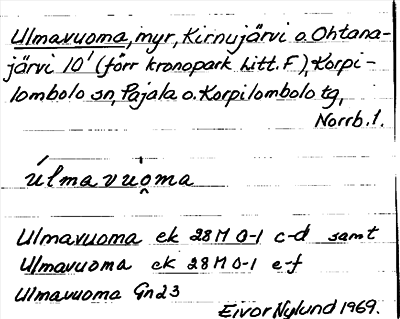 Ulmavuoma, myr, Kirnujärvi o. Ohtana-
järvi 10' (förr kronopark Litt. F), Korpi-
lombolo sn, Pajala o. Korpilombolo tg,
Norrb. l.
úlmavuo̭ma
Ulmavuoma ek 28 M 0-1 c-d samt
Ulmavuoma ek 28 M 0-1 e-f
Ulmavuoma Gn 23
Eivor Nylund 1969.